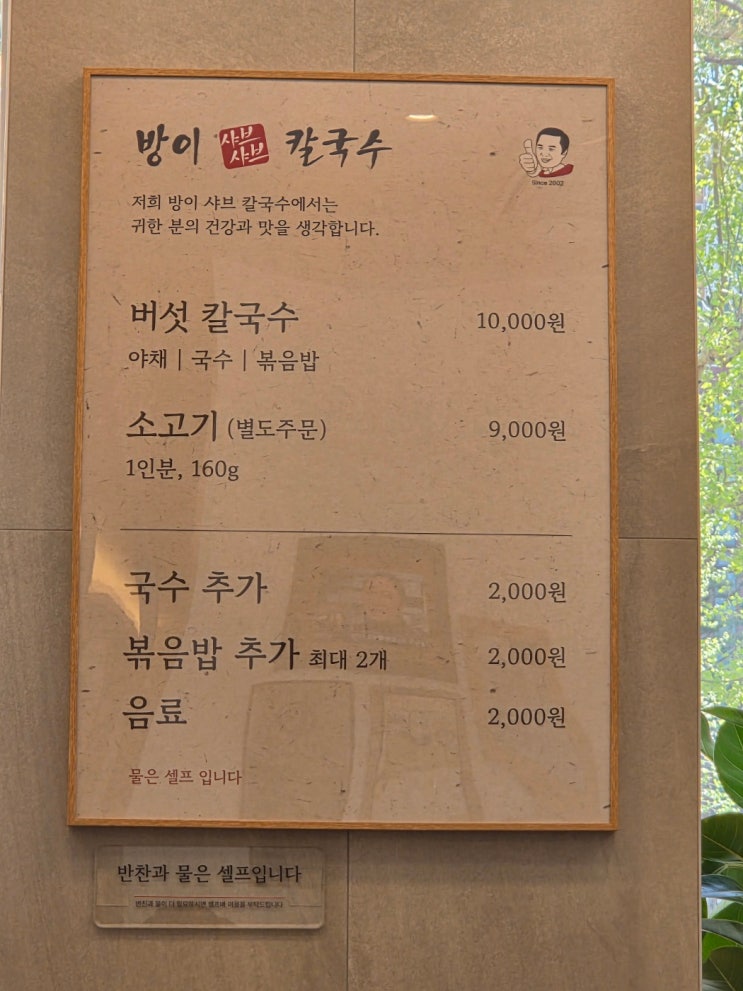 방이 샤브샤브 칼국수
Since 2002
저희 방이 샤브 칼국수에서는
귀한 분의 건강과 맛을 생각합니다.
버섯 칼국수 10,000원
야채 | 국수 | 볶음밥
소고기 (별도주문) 9,000원
1인분, 160g
국수 추가 2,000원
볶음밥 추가 최대 2개 2,000원
음료 2,000원
물은 셀프 입니다
반찬과 물은 셀프입니다
반찬과 물이 더 필요하시면 셀프바 이용을 부탁드립니다